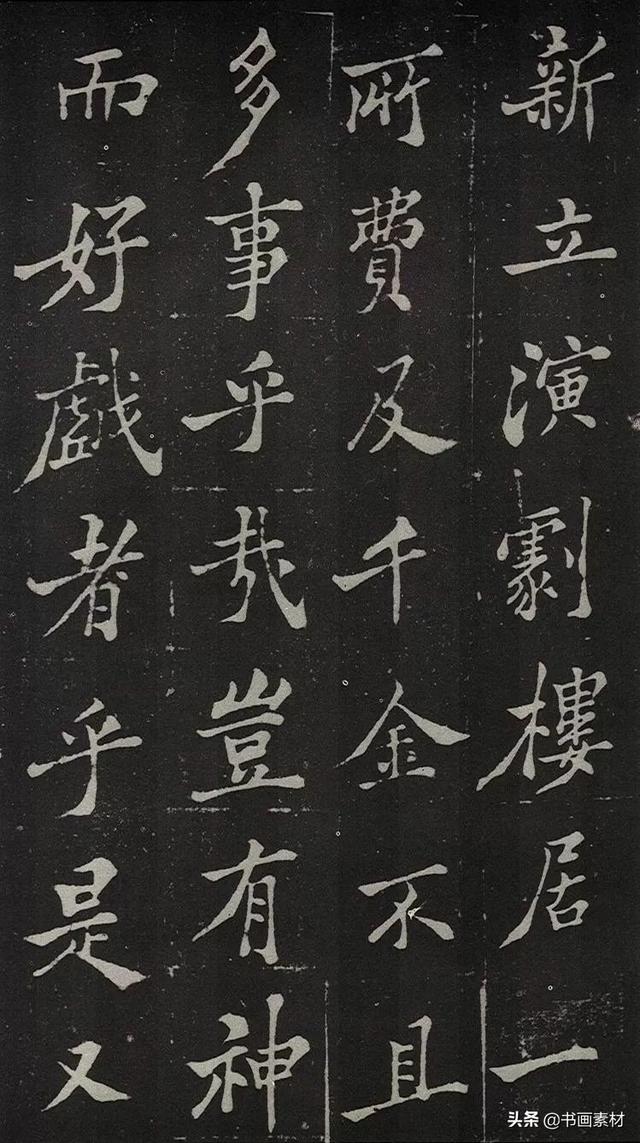 新立演劇樓居一
所費及千金不且
多事乎哉豈有神
而好戲者乎是又
头条 @书画素材